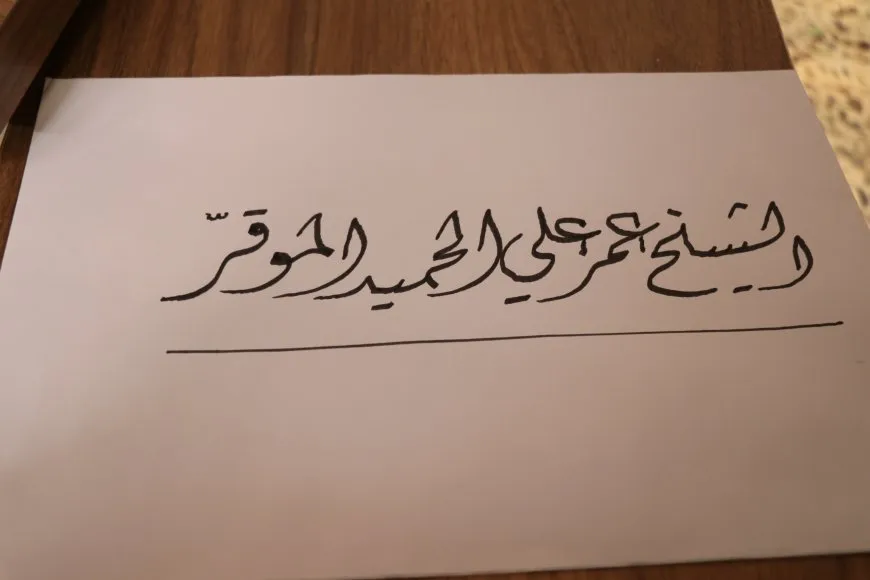 الشيخ عمر علي الحميد الموقرّ